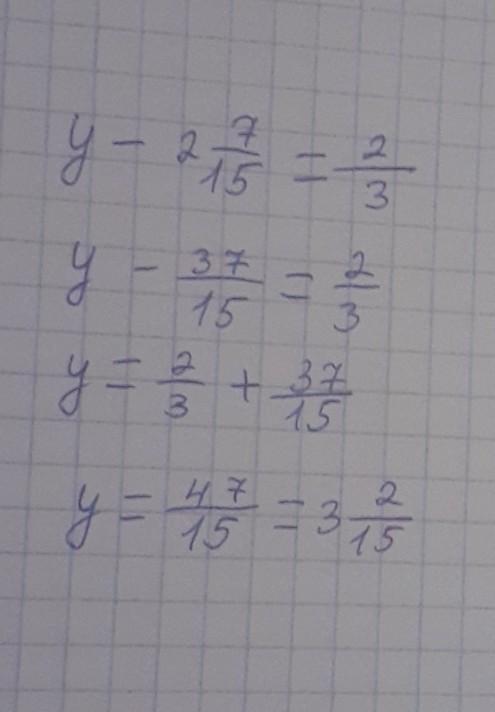 y - 2 7/15 = 2/3
y - 37/15 = 2/3
y = 2/3 + 37/15
y = 47/15 = 3 2/15